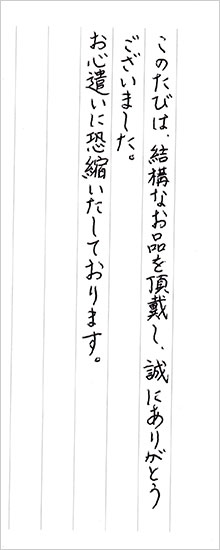 このたびは、結構なお品を頂戴し、誠にありがとう
ございました。
お心遣いに恐縮いたしております。